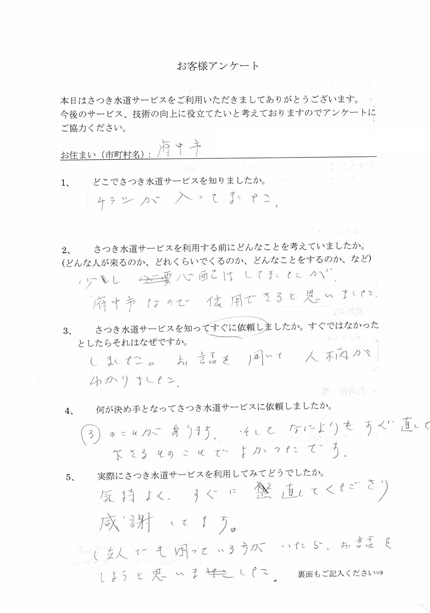 お客様アンケート
本日はさつき水道サービスをご利用いただきましてありがとうございます。
今後のサービス、技術の向上に役立てたいと考えておりますのでアンケートに
ご協力ください。
お住まい（市町村名）: 府中市
1、 どこでさつき水道サービスを知りましたか。
チラシが入ってました。
2、 さつき水道サービスを利用する前にどんなことを考えていましたか。
(どんな人が来るのか、どれくらいでくるのか、どんなことをするのか、など)
少し 心配はしてましたが
府中市なので 信用できると思いました。
3、 さつき水道サービスを知ってすぐに依頼しましたか。すぐではなかった
としたらそれはなぜですか。
しました。お話を聞いて 人柄が
わかりました。
4、 何が決め手となってさつき水道サービスに依頼しましたか。
③ のことがあります。そして なによりもすぐ直して
下さるとのことでよかったです。
5、 実際にさつき水道サービスを利用してみてどうでしたか。
気持よく、すぐに 直してくださり
感謝してます。
友人でも困っている方がいたら、お話を
しようと思いました。
裏面もご記入ください⇒